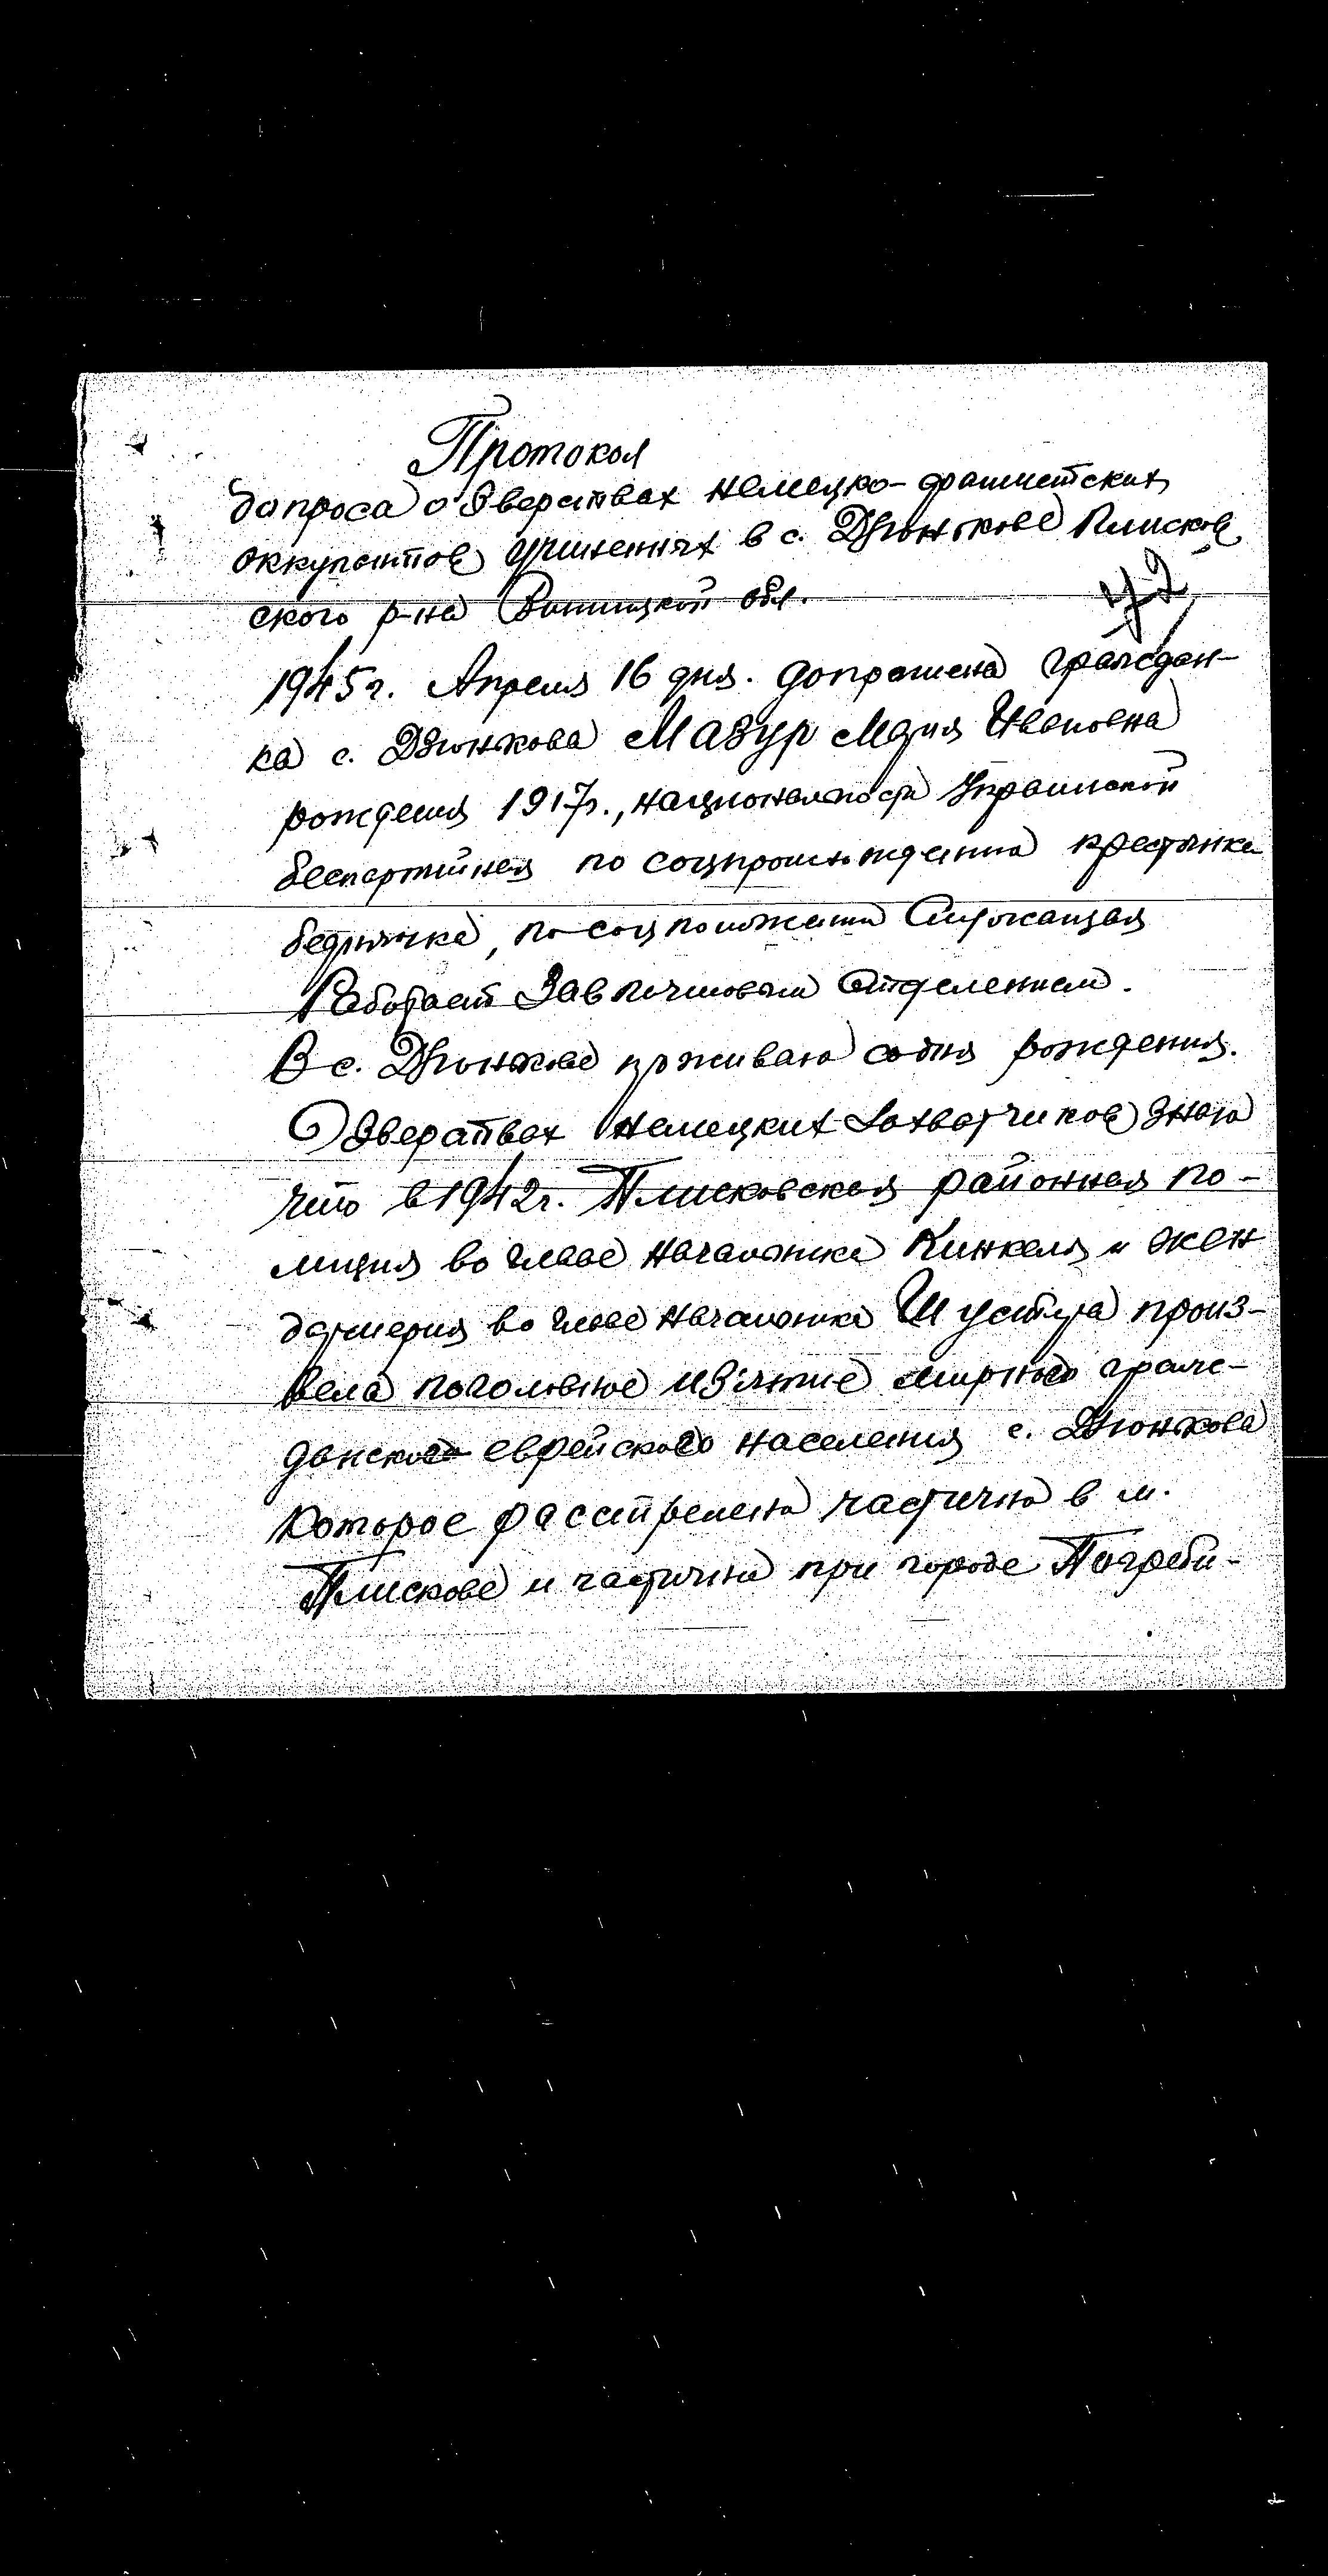 Протокол
допроса о зверствах немецко-фашистских
оккупантов учиненных в с. Дзюнькове Плисков
ского р-на Виницкой обл.
42
1945 г. Апреля 16 дня. допрошена граждан-
ка с. Дзюнкова Мазур Мария Ивановна
рождения 1917 г., национальности Украинской
беспартийная по соцпроисхождению крестянка
беднячка, по соц положении Служащая
Работает Зав почтовым Отделением.
В с. Дзюнькове проживаю со дня рождения.
О Зверствах немецких Захватчиков знаю
что в 1942 г. Плисковская районная по-
лиция во главе начальника Кинкеля и жен
дармерия во главе начальника Шустера произ-
вела поголовное изятие мирного граж-
данского еврейского населения с. Дзюнькова
которое расстреляно частично в м.
Плискове и частично при городе Погреби-